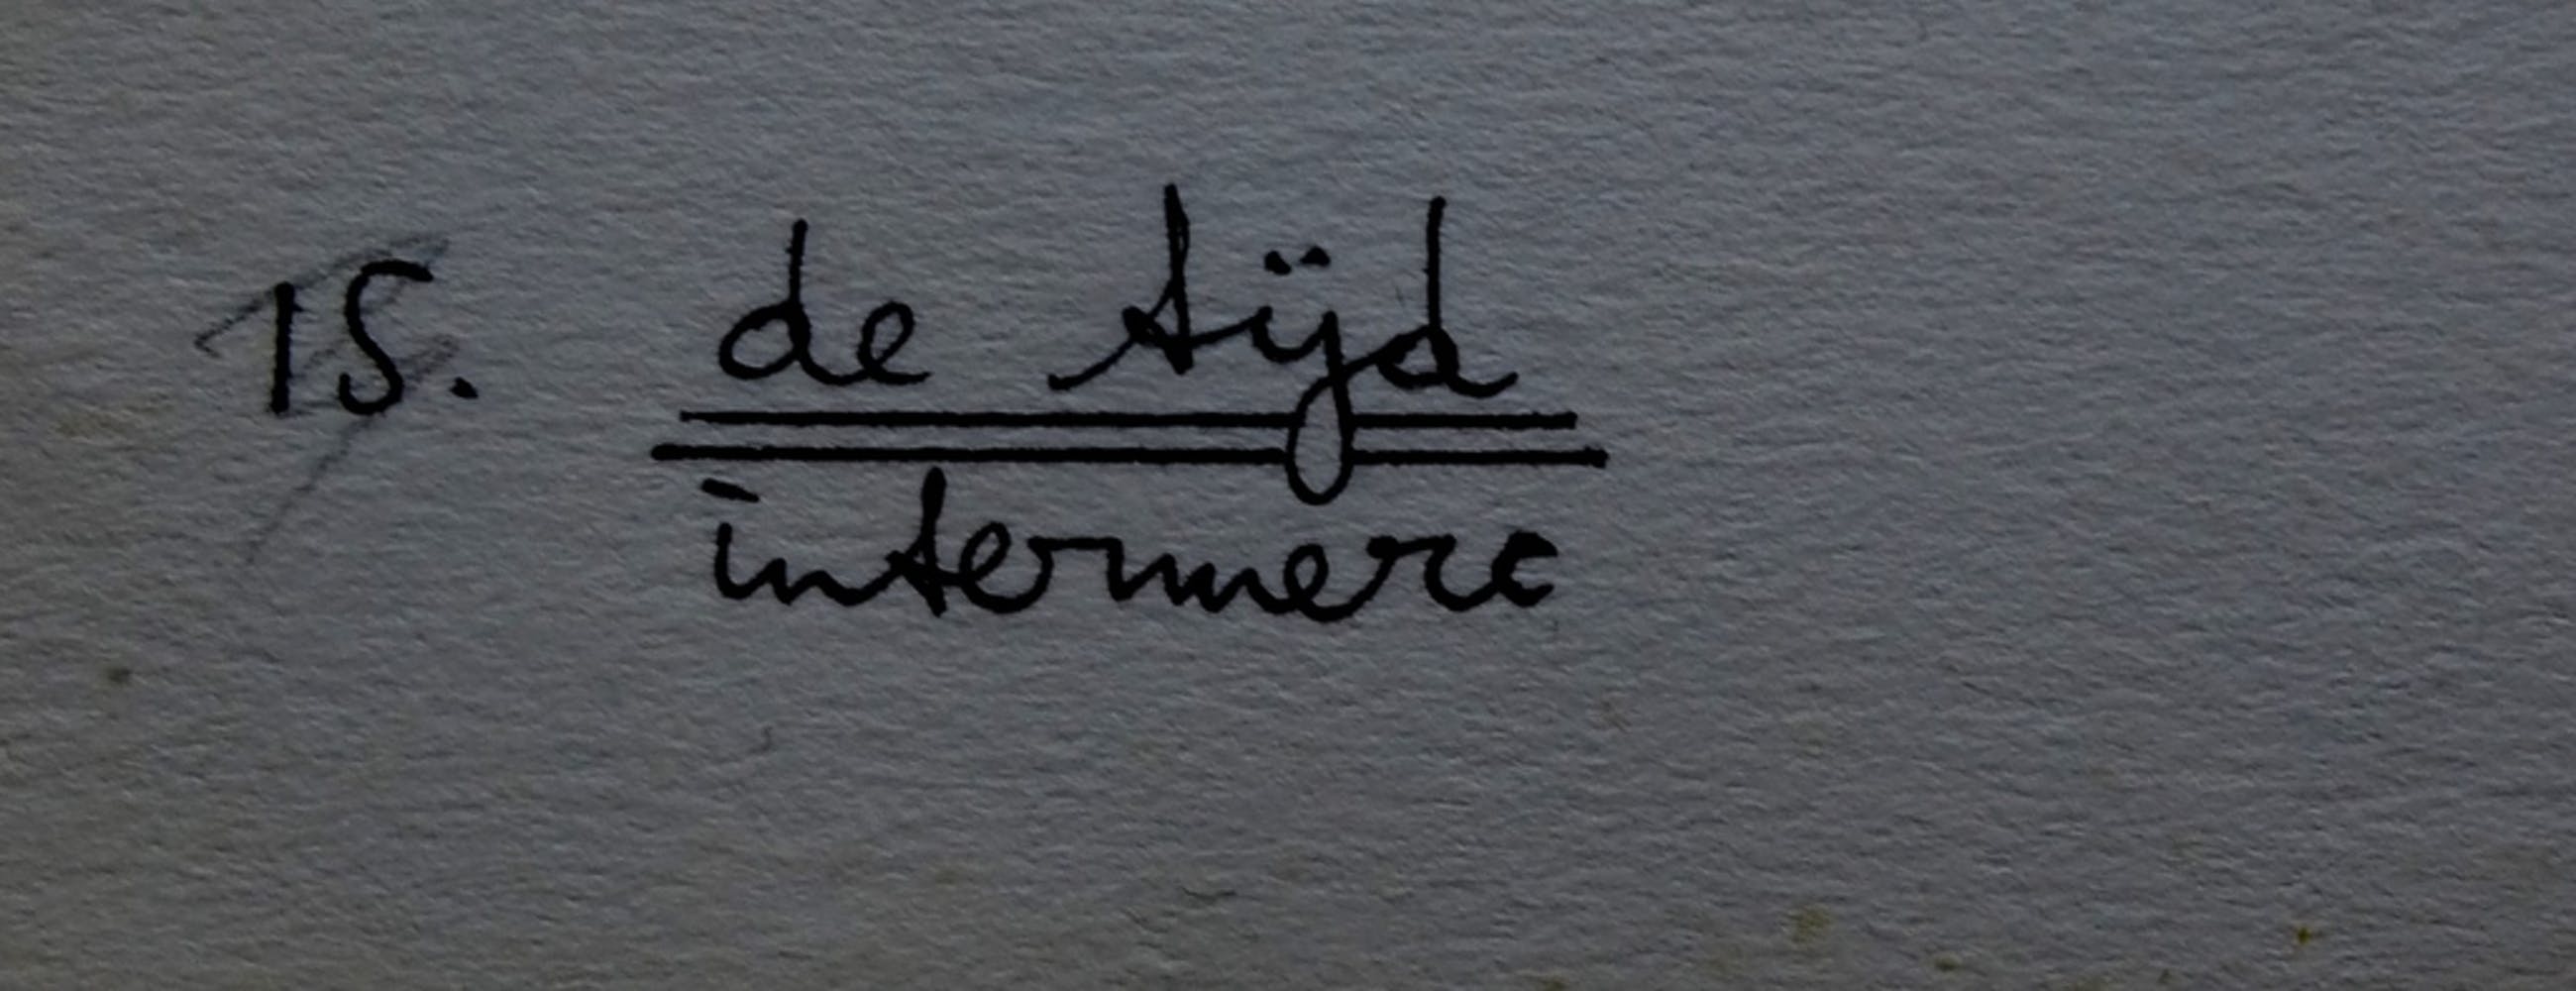 15. de tijd
intermere